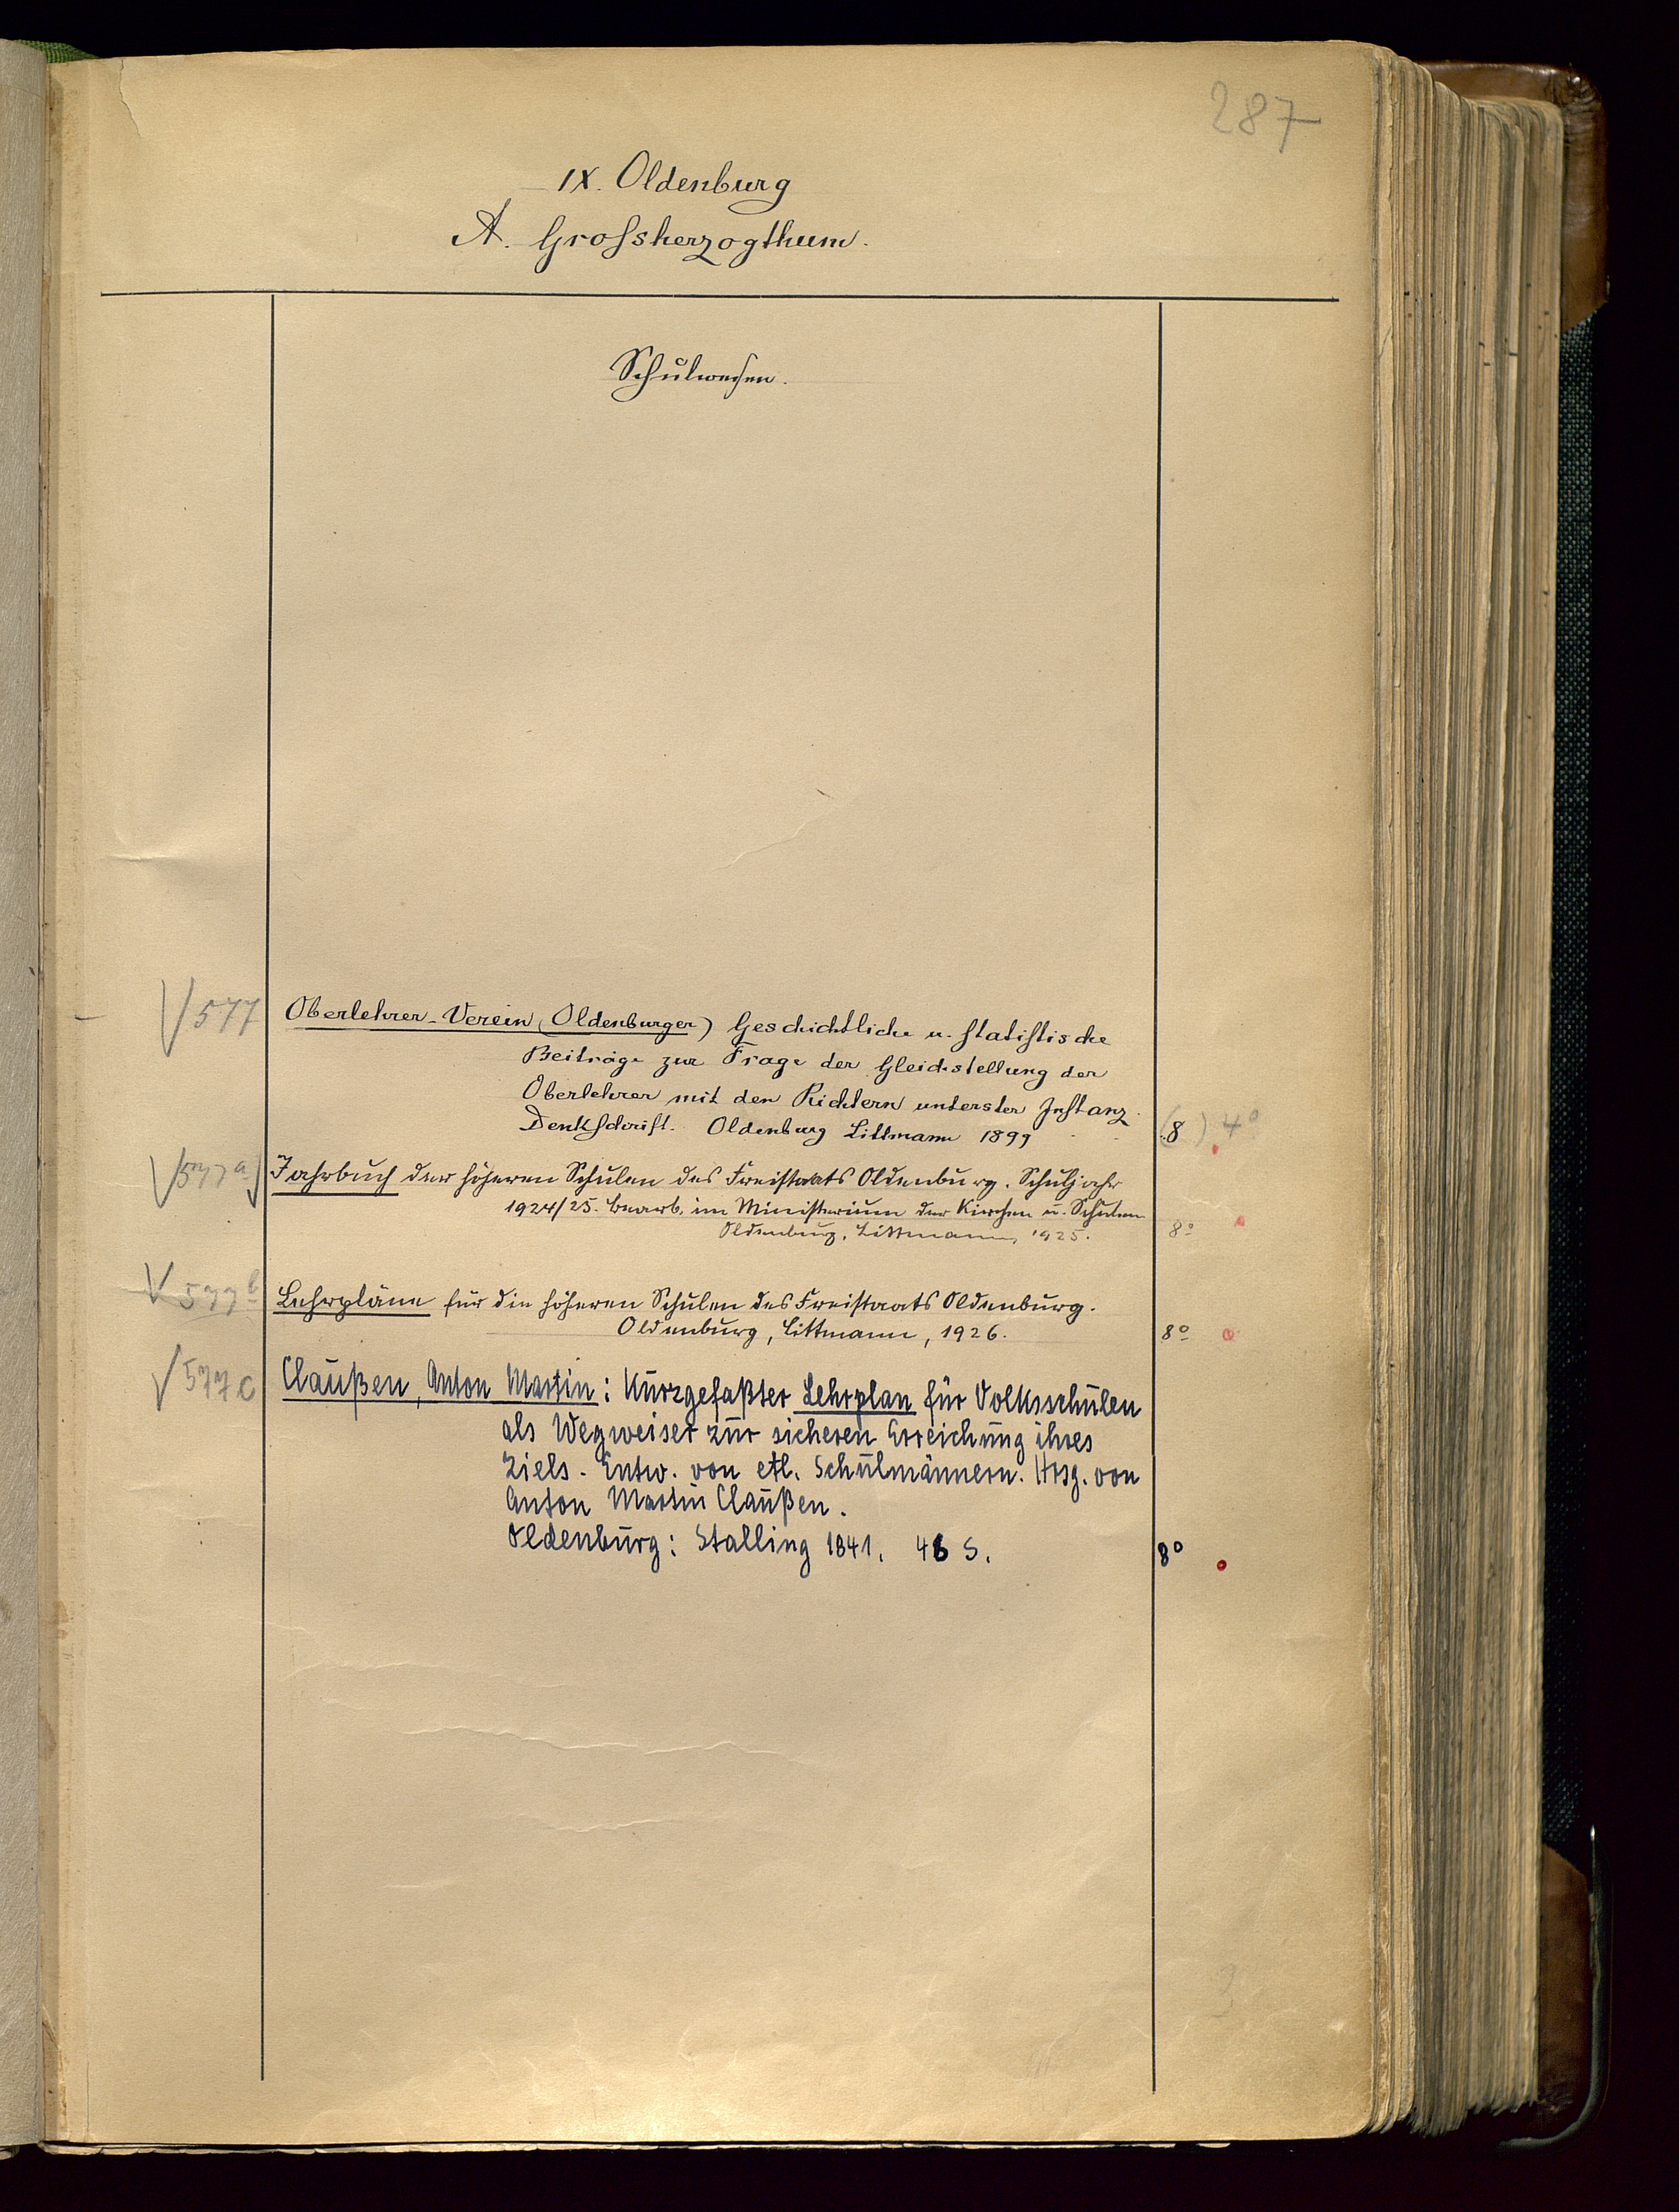 287
IX. Oldenburg
A. Grossherzogthum.
Schulwesen.
577 Oberlehrer-Verein (Oldenburger) Geschichtliche u. statistische
Beiträge zur Frage der Gleichstellung der
Oberlehrer mit den Richtern unterster Instanz.
Denkschrift. Oldenburg Littmann 1899 (8) 4°
577a Jahrbuch der höheren Schulen des Freistaats Oldenburg. Schuljahr
1924/25. Bearb. im Ministerium der Kirchen u. Schulen
Oldenburg, Littmann, 1925. 8°
577b Lehrpläne für die höheren Schulen des Freistaats Oldenburg.
Oldenburg, Littmann, 1926. 8°
577c Claußen, Anton Martin: Kurzgefaßter Lehrplan für Volksschulen
als Wegweiser zur sicheren Erreichung ihres
Ziels. Entw. von etl. Schulmännern. Hrsg. von
Anton Martin Claußen.
Oldenburg: Stalling 1841. 46 S. 8°